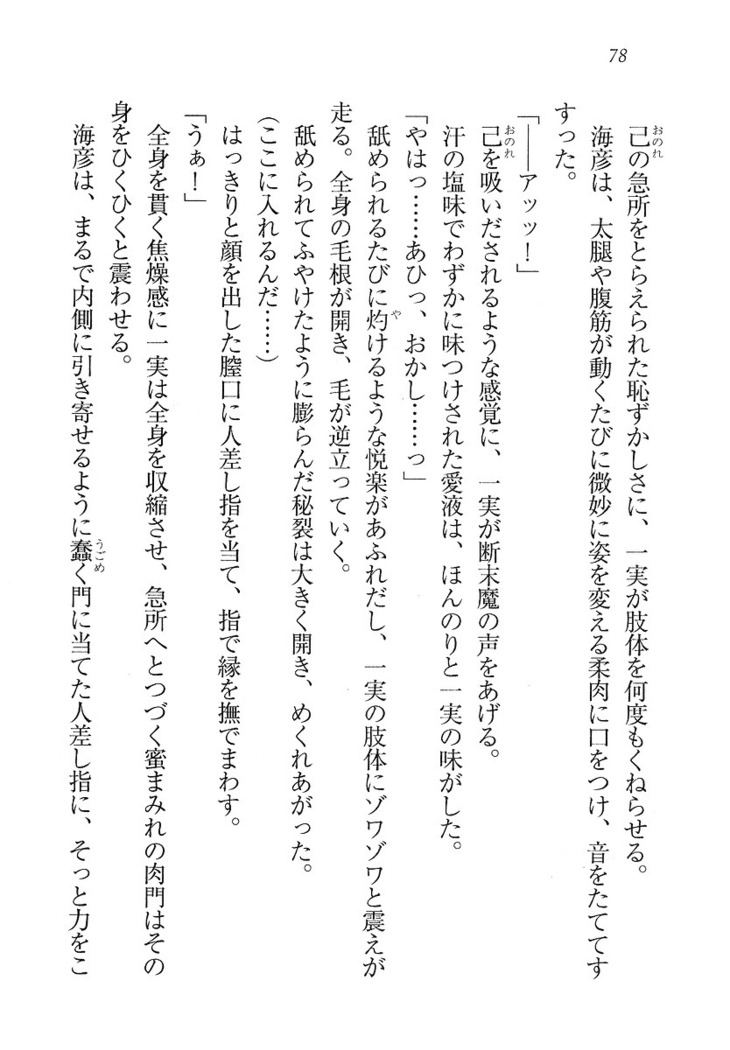 78
己の急所をとらえられた恥ずかしさに、一実が肢体を何度もくねらせる。
海彦は、太腿や腹筋が動くたびに微妙に姿を変える柔肉に口をつけ、音をたててす
すった。
「――アッッ！」
己を吸いだされるような感覚に、一実が断末魔の声をあげる。
汗の塩味でわずかに味つけされた愛液は、ほんのりと一実の味がした。
「やはっ……あひっ、おかし……っ」
舐められるたびに灼けるような悦楽があふれだし、一実の肢体にゾワゾワと震えが
走る。全身の毛根が開き、毛が逆立っていく。
舐められてふやけたように膨らんだ秘裂は大きく開き、めくれあがった。
(ここに入れるんだ……)
はっきりと顔を出した膣口に人差し指を当て、指で縁を撫でまわす。
「うぁ！」
全身を貫く焦燥感に一実は全身を収縮させ、急所へとつづく蜜まみれの肉門はその
身をひくひくと震わせる。
海彦は、まるで内側に引き寄せるように蠢く門に当てた人差し指に、そっと力をこ